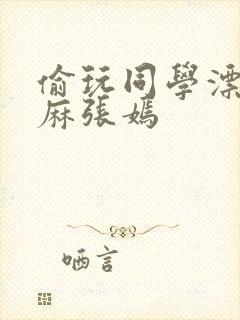 偷玩同學漂
麻張媽
哂言